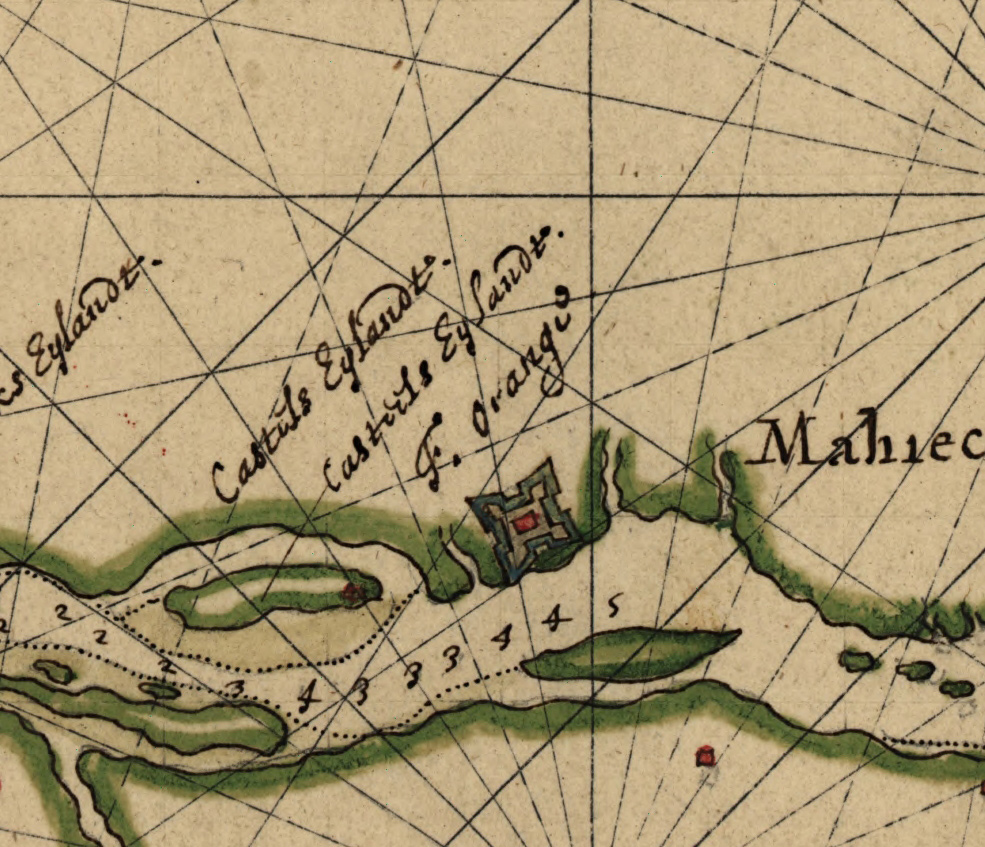 Eylandt.
Castuls Eylandt.
Castuls Eylandt.
F. Orangie
Mahiec
2
2
2
2
3
4
3
3
3
4
4
5